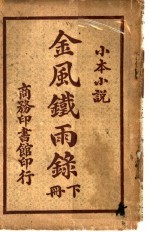 小本小說
金風鐵雨錄
下冊
商務印書館印行